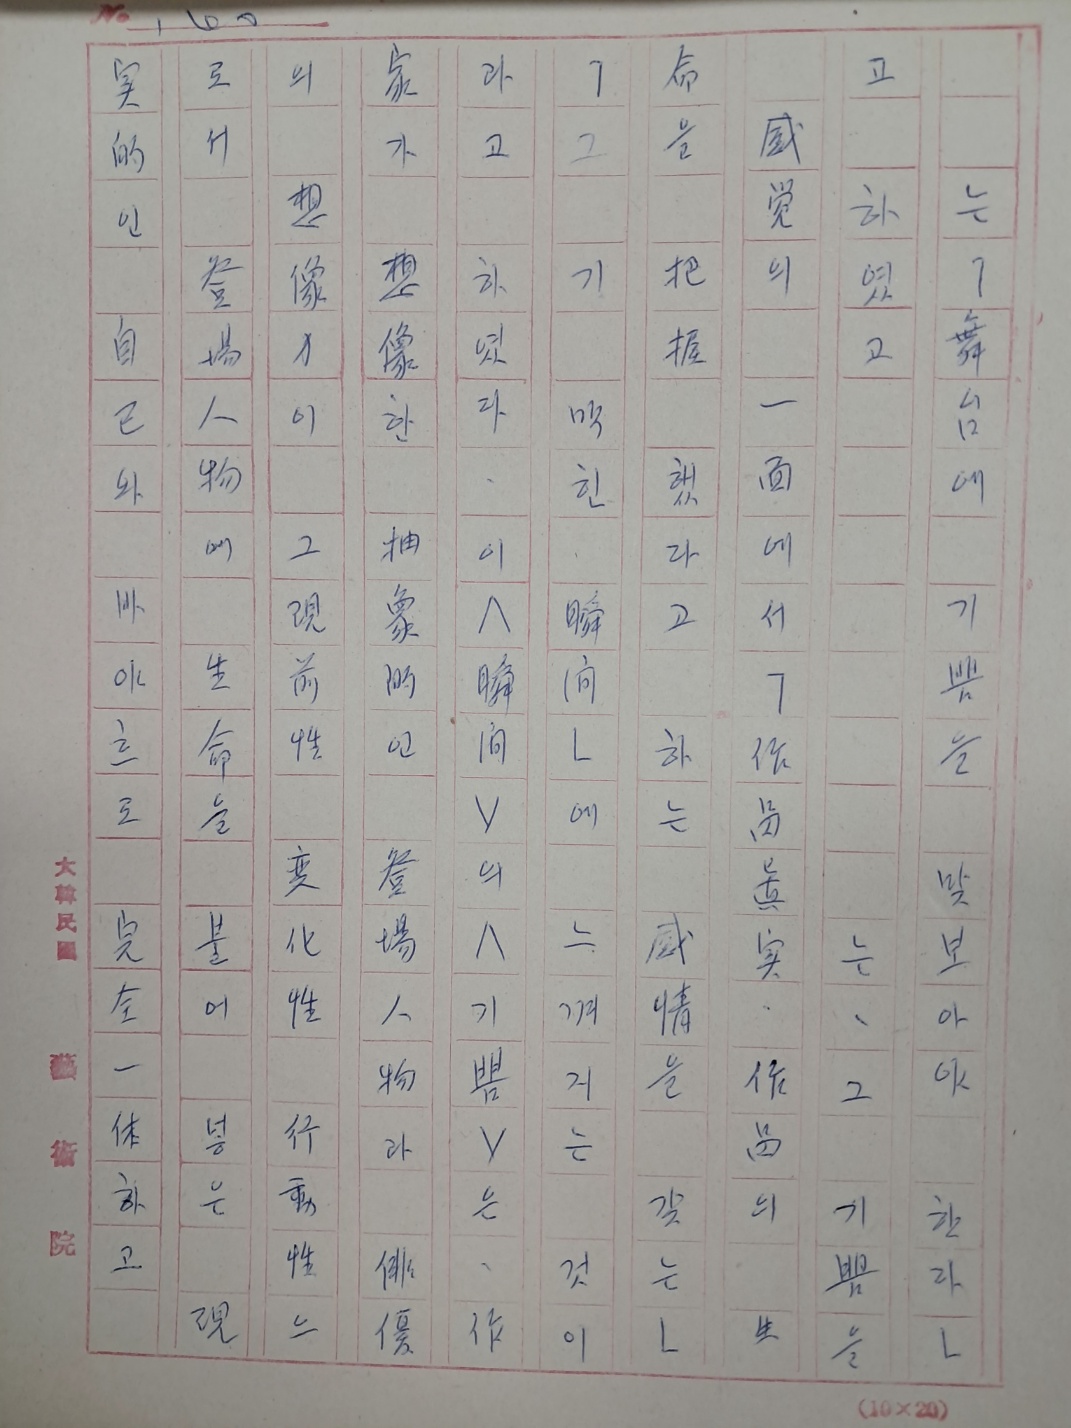 No. 160
는「舞台에 기쁨을 맞보아야 한다」
고 하였고 는、그 기쁨을
感覚의 一面에서「作品眞実·作品의 生
命을 把握했다고 하는 感情을 갖는」
「그 기 막힌·瞬间」에 느껴지는 것이
라고 하였다. 이<瞬间>의<기쁨>은、作
家가 想像한 抽象的인 登場人物라 俳優
의 想像力이 그 現前性 変化性 行動性으
로서 登場人物에 生命을 불어 넣은 現
実的인 自己와 바야흐로 完全一体하고
大韓民國 藝術院
(10×20)